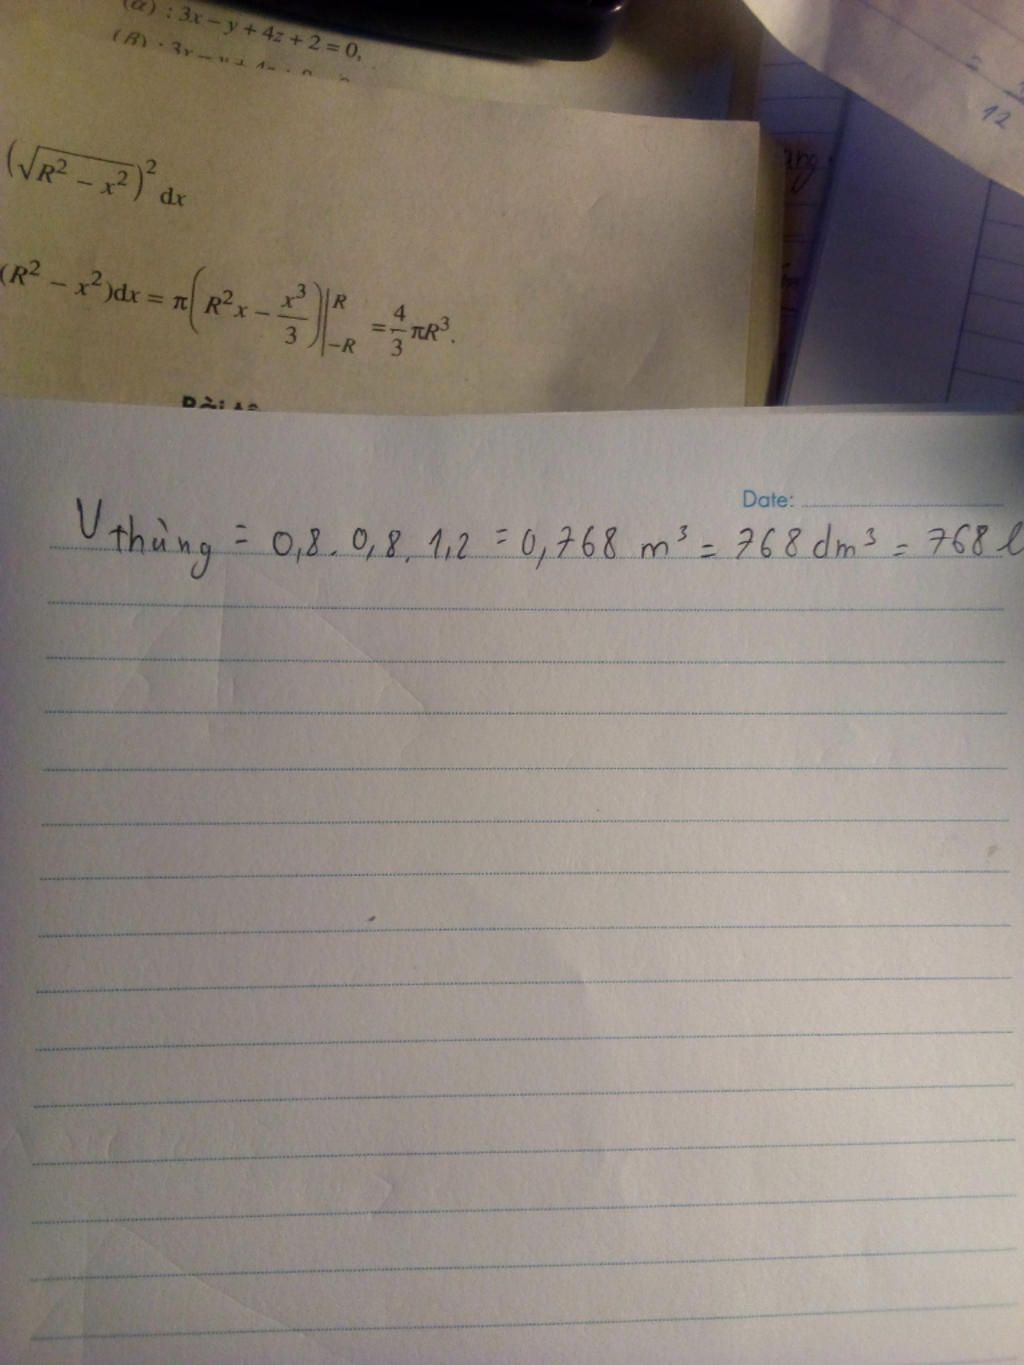 (α) : 3x − y + 4z + 2 = 0,
= 12
(√(R² − x²))² dx
(R² − x²)dx = π(R²x − x³/3)|_{−R}^{R} = 4/3 πR³.
Date:
V thùng = 0,8 . 0,8 . 1,2 = 0,768 m³ = 768 dm³ = 768 l